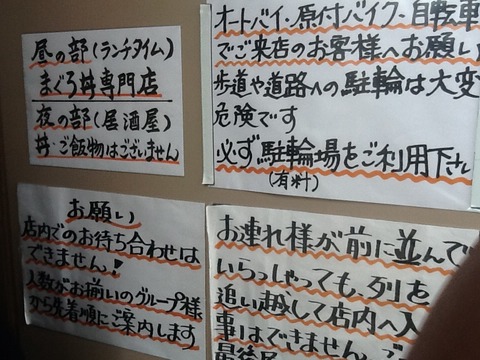 昼の部(ランチタイム)
まぐろ丼専門店
夜の部(居酒屋)
丼・ご飯物はございません
オートバイ・原付バイク・自転車
でご来店のお客様へお願い
歩道や道路への駐輪は大変
危険です
必ず駐輪場をご利用下さい
(有料)
お願い
店内でのお待ち合わせは
できません!
人数がお揃いのグループ様
から先着順にご案内します
お連れ様が前に並んで
いらっしゃっても、列を
追い越して店内へ入
事はできません。
最後尾